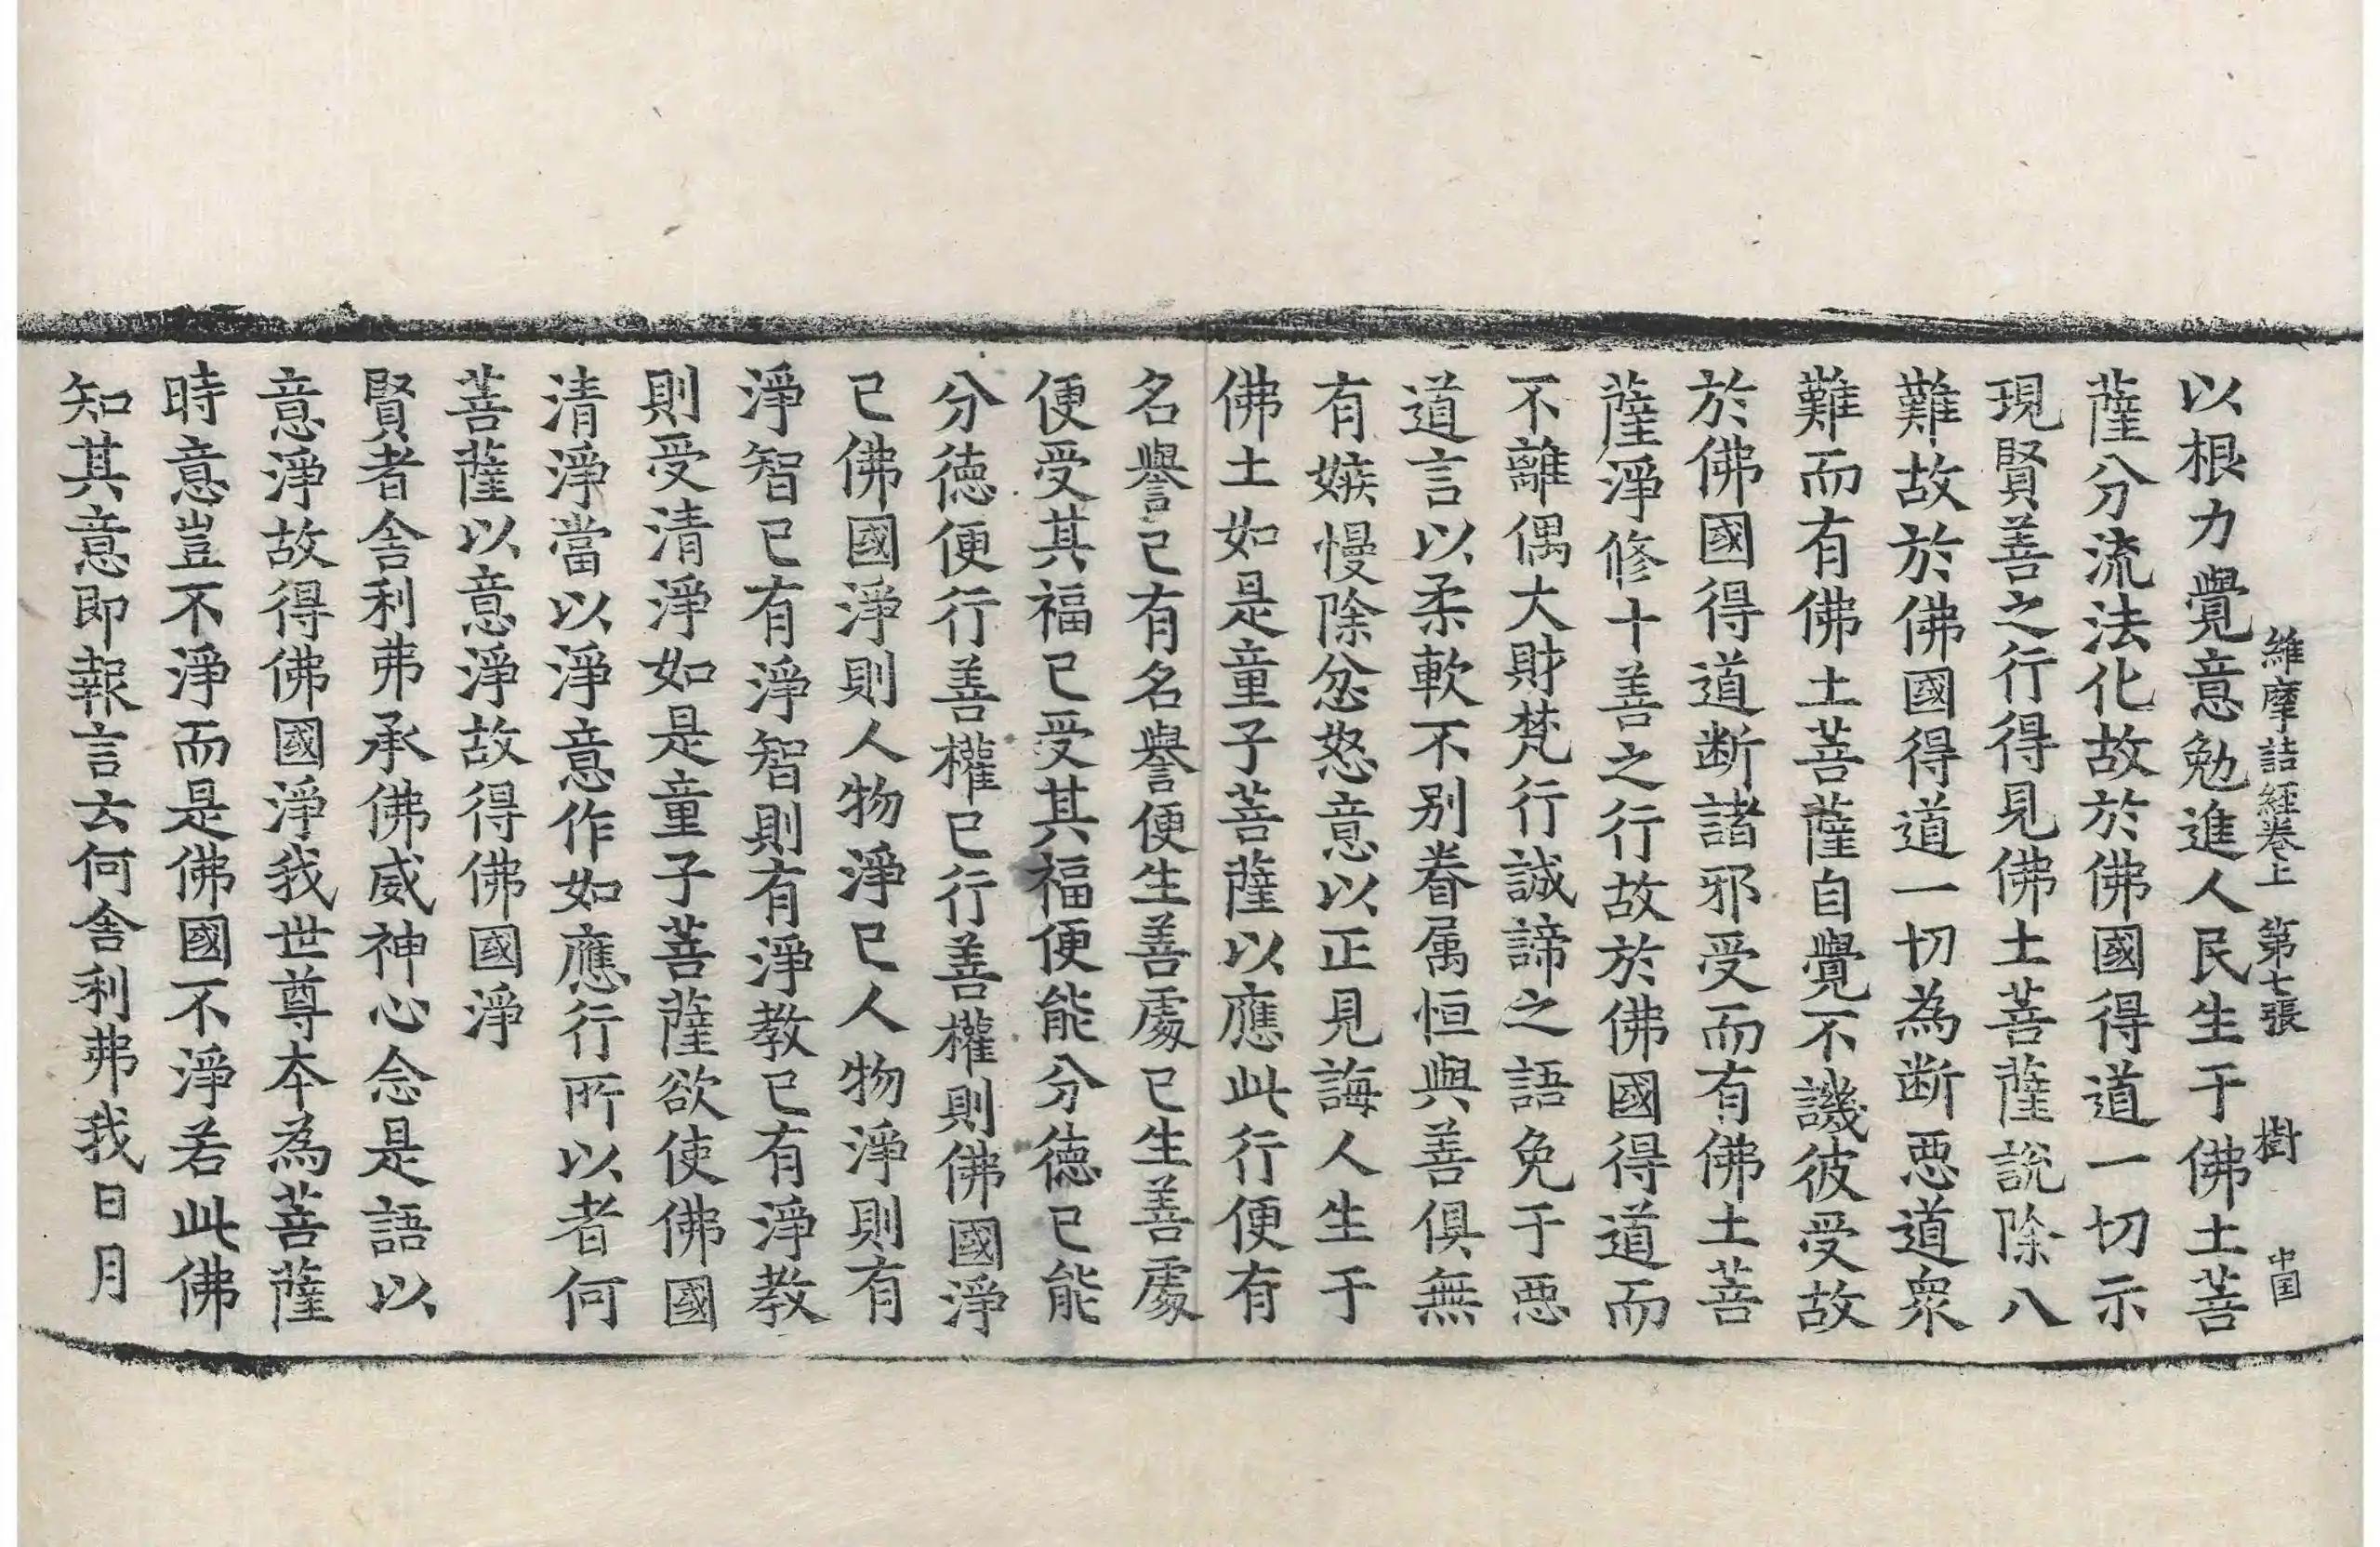 維摩詰經卷上 第七張 樹 中国
以根力覺意勉進人民生于佛土菩
薩分流法化故於佛國得道一切示
現賢善之行得見佛土菩薩說除八
難故於佛國得道一切為断惡道衆
難而有佛土菩薩自覺不譏彼受故
於佛國得道断諸邪受而有佛土菩
薩淨修十善之行故於佛國得道而
不離偶大財梵行誠諦之語免于惡
道言以柔軟不别眷属恒與善俱無
有嫉慢除忿怒意以正見誨人生于
佛土如是童子菩薩以應此行便有
名譽已有名譽便生善處已生善處
便受其福已受其福便能分德已能
分德便行善權已行善權則佛國淨
已佛國淨則人物淨已人物淨則有
淨智已有淨智則有淨教已有淨教
則受清淨如是童子菩薩欲使佛國
清淨當以淨意作如應行所以者何
菩薩以意淨故得佛國淨
賢者舍利弗承佛威神心念是語以
意淨故得佛國淨我世尊本為菩薩
時意豈不淨而是佛國不淨若此佛
知其意即報言云何舍利弗我日月